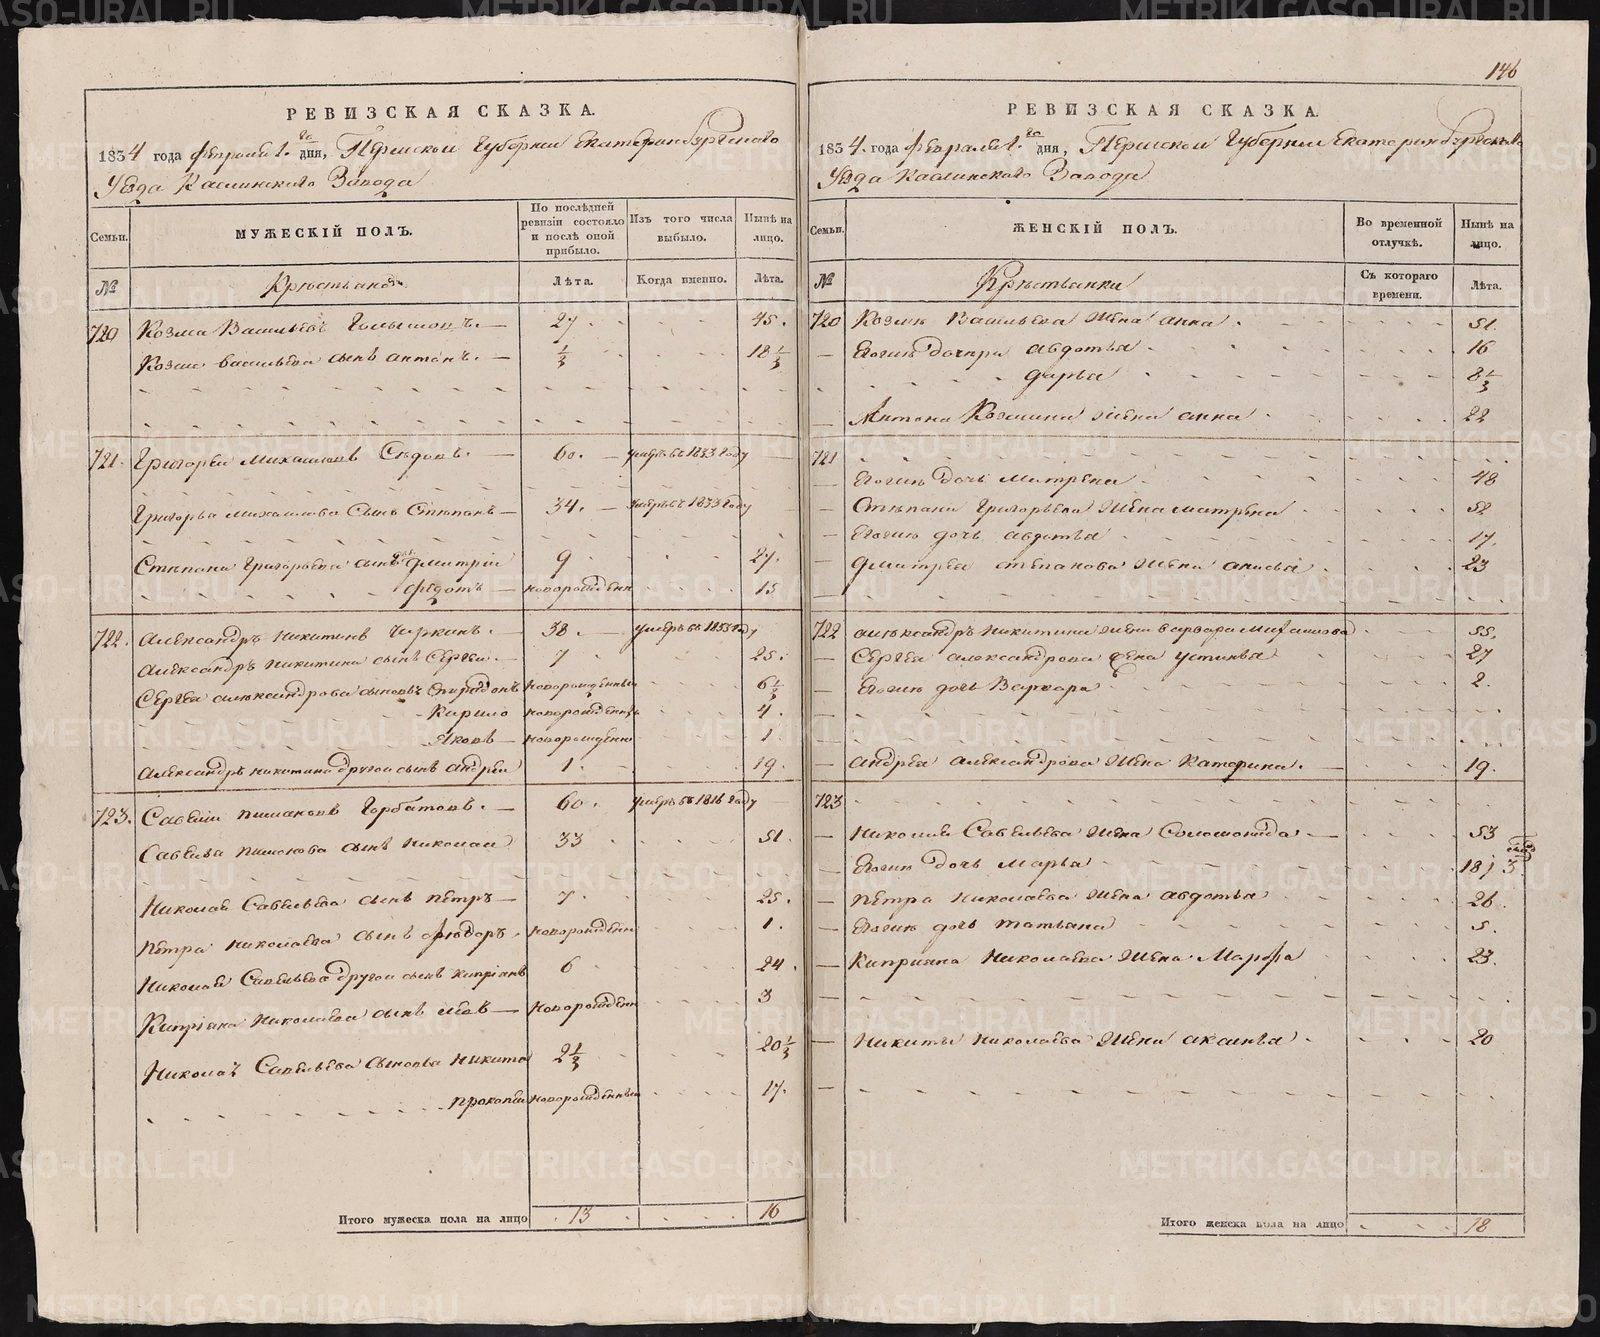 146
РЕВИЗСКАЯ СКАЗКА.
1834 года февраля 1.го дня, Пермской Губернии Екатеринбургского
Уезда Каслинского Завода
Семьи.
МУЖЕСКІЙ ПОЛЪ.
По послѣдней ревизіи состояло и послѣ оной прибыло.
Изъ того числа выбыло.
Нынѣ на лицо.
№
Крестьяне
Лѣта.
Когда именно.
Лѣта.
720 Козма Васильевъ 27 45.
Козмы Васильева сынъ Антонъ. 1/3 18 1/3
721. Григорей Михайловъ Седовъ. 60. умеръ въ 1833 году
Григорья Михайлова сынъ Степанъ 34. умеръ въ 1833 году
Степана Григорьева сынъ Дмитрій 9 27.
Федотъ новорожденн 15
722. Александръ Никитинъ 38. умеръ въ 1833 году
Александръ Никитина сынъ Сергеи. 7 25.
Сергея Александрова сыновья Спиридонъ новорожденныи 6 1/2
Кирило новорожденнъ 4.
Яковъ новорожденн 1
Александръ Никитина другой сынъ Андреи 1. 19.
723. Савелій Горбатовъ. 60. умеръ въ 1816 году
Савелья сынъ Николай 33 51.
Николая Савельева сынъ Петръ 7. 25.
Петра Николаева сынъ Федоръ. новорожденн 1.
Николая Савельева другой сынъ Кипріянъ 6 24.
Кипріяна Николаева сынъ Левъ новорожденн 3
Николая Савельева сыновья Никита 2 1/3 20 1/3
Прокопей новорожденныи 17.
Итого мужеска пола на лицо 13 16
РЕВИЗСКАЯ СКАЗКА.
1834. года февраля 1.го дня, Пермской Губернии Екатеринбургского
Уезда Каслинского Завода
Семьи.
ЖЕНСКІЙ ПОЛЪ.
Во временной отлучкѣ.
Нынѣ на лицо.
№
Крестьянки
Съ котораго времени.
Лѣта.
720 Козмы Васильева жена Анна. 51.
Егожъ дочери Авдотья 16
Дарья 8 1/3
Антона Козмина жена Анна 22
721
Егожъ дочь Матрена 48
Степана Григорьева жена Матрена 52
Егожъ дочь Авдотья 17.
Дмитрея Степанова жена Анисья 23
722 Александръ Никитина жена Варвара Михайлова 55.
Сергея Александрова жена Устинья 27
Егожъ дочь Варвара 2.
Андрея Александрова жена Катерина. 19.
723
Николая Савельева жена Соломонида 53
Егожъ дочь Марья 18
Петра Николаева жена Авдотья 26.
Егожъ дочь Татьяна 5.
Киприяна Николаева жена Марфа 23.
Никиты Николаева жена Аксинья 20
Итого женска пола на лицо 18
METRIKI.GASO-URAL.RU